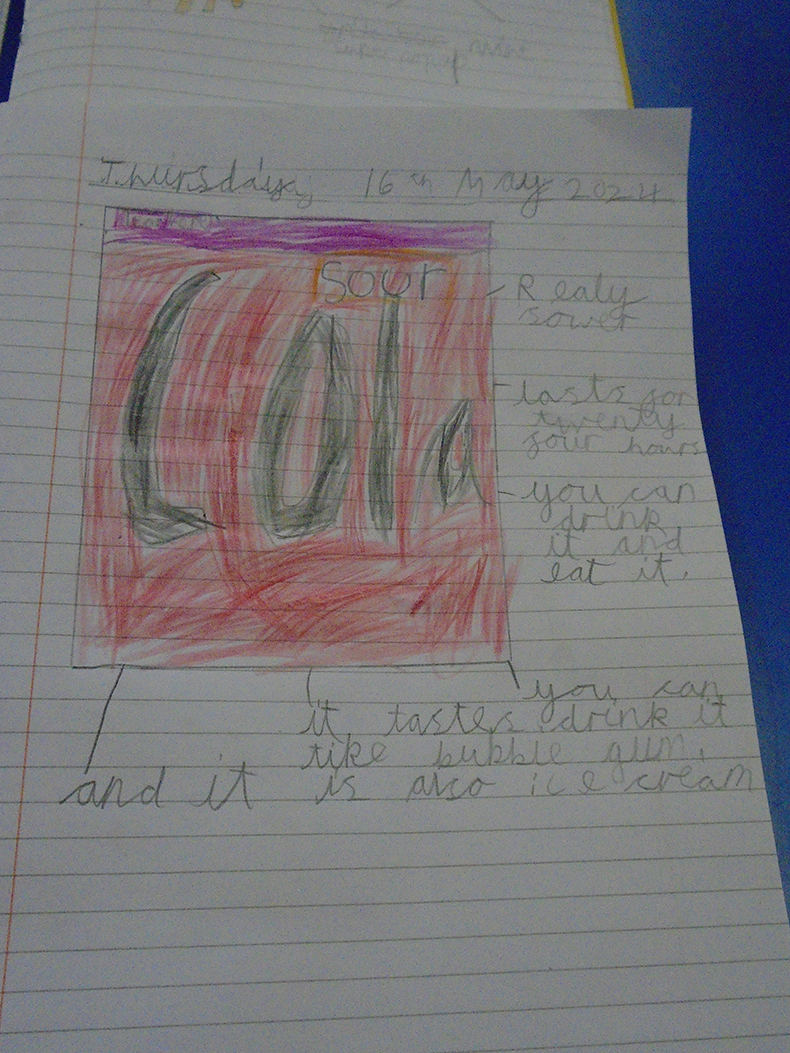 Thursday, 16th May 2024
Sour
Cola
Realy
sower
lasts for
twenty
four hours
you can
drink
it and
eat it.
you can
drink it
it tastes
like bubble gum.
and it is also ice cream